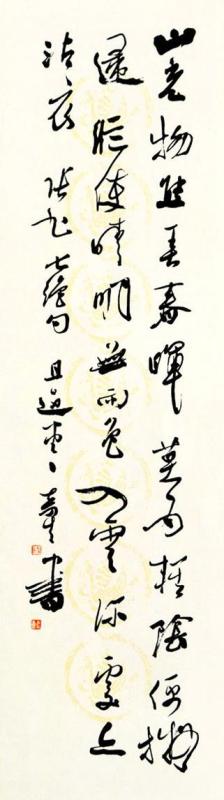 山光物態弄春暉莫為輕陰便擬
歸縱使晴明無雨色入雲深處亦
沾衣 張旭七絕句 書